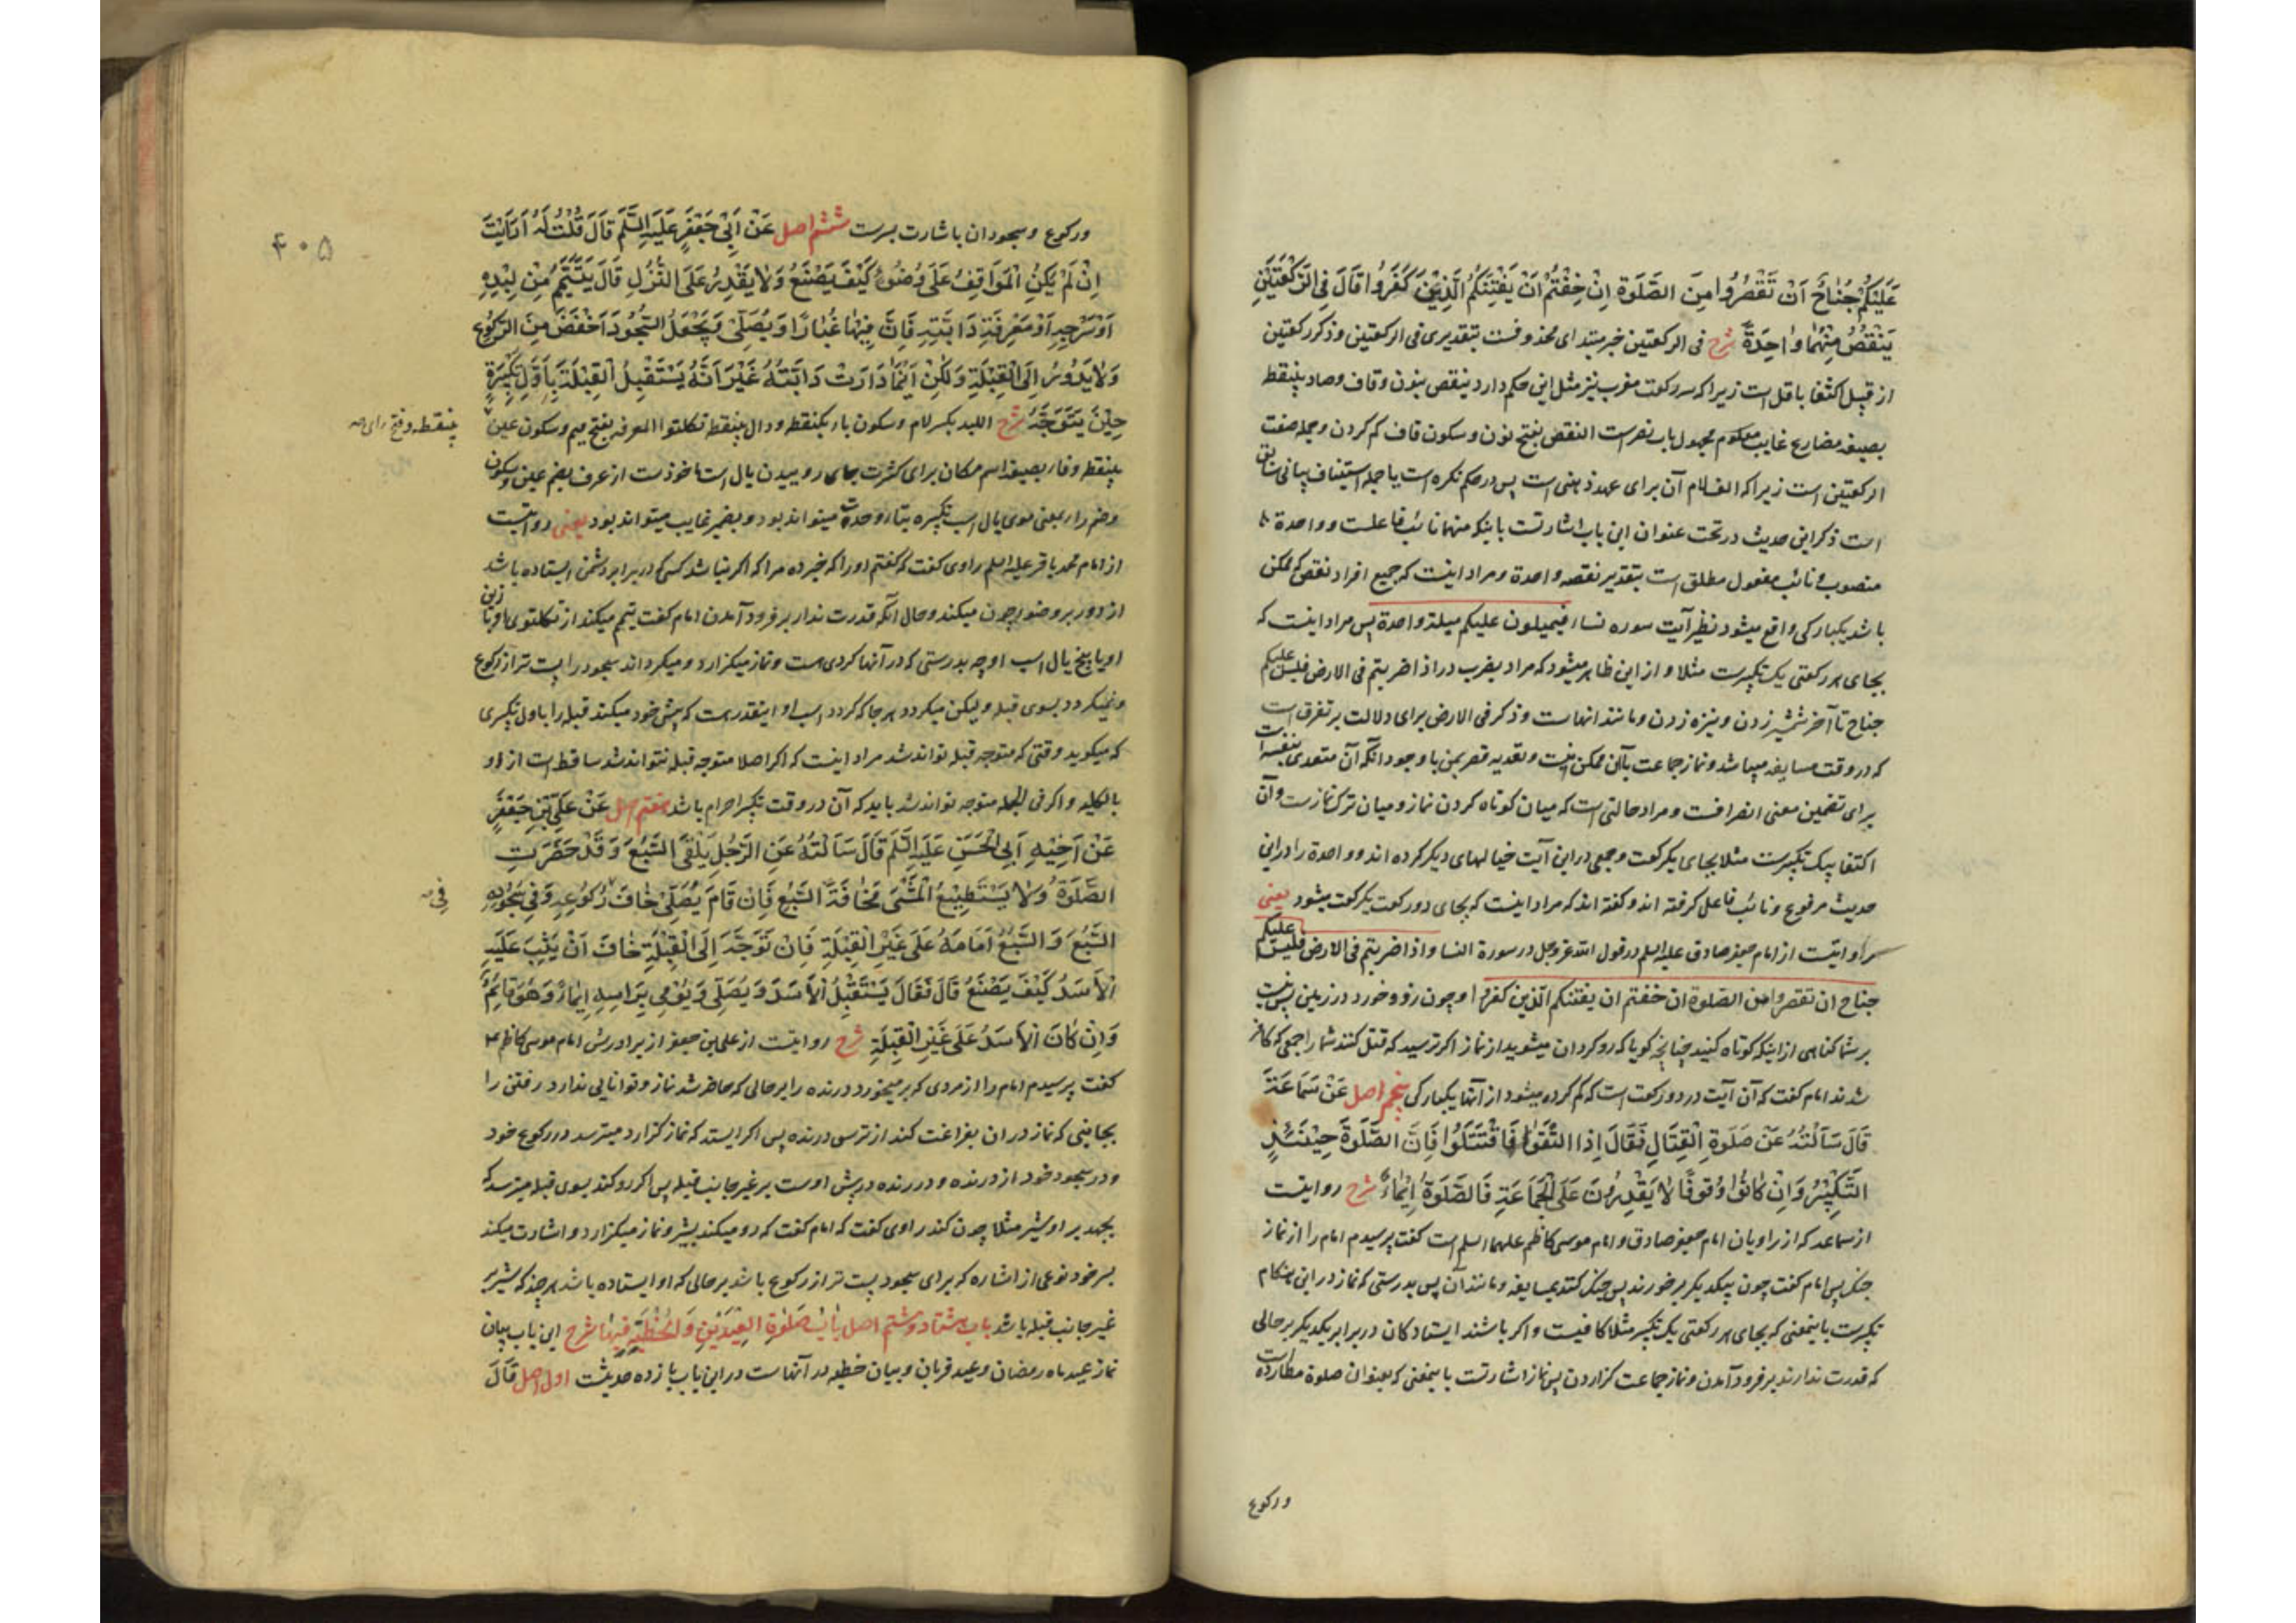 عَلَيْكُمْ جُنَاحٌ اَنْ تَقْصُرُوا مِنَ الصَّلٰوةِ اِنْ خِفْتُمْ اَنْ يَفْتِنَكُمُ الَّذِيْنَ كَفَرُوا قَالَ فِي الرَّكْعَتَيْنِ
يَنْقُصُ مِنْهُمَا وَاحِدَةً شرح فی الرکعتین خبر مبتدای محذوفست بتقدیری فی الرکعتین و ذکر رکعتین
از قبیل اکتفا باقل است زیرا که سه رکعت مغرب نیز مثل این حکم دارد ینقص بنون و قاف و صاد بینقطه
بصیغه مضارع غایب معلوم مجهول باب نصر است النقص بفتح نون و سکون قاف کم کردن و جمله صفت
الرکعتین است زیرا که الف لام آن برای عهد ذهنی است پس در حکم نکره است یا جمله استیناف بیانی سابق
است ذکر این حدیث در تحت عنوان این باب اشارتست باینکه منهما نائب فاعلست و واحدة
منصوب و نائب مفعول مطلق است بتقدیر نقصه واحدة و مراد اینست که جمیع افراد نقص که ممکن
باشد یکبارکی واقع میشود نظیر آیت سوره نساء فیمیلون علیکم میلة واحدة پس مراد اینست که
بجای هر رکعتی یک تکبیرست مثلا و از این ظاهر میشود که مراد بضرب در اذا ضربتم فی الارض فلیس علیکم
جناح تا آخر شمشیر زدن و نیزه زدن و مانند انهاست و ذکر فی الارض برای دلالت بر تفرق است
که در وقت مسایفه میباشد و نماز جماعت باآن ممکن نیست و تعدیه قصر بمن با وجود آنکه آن متعدی بنفسه است
برای تضمین معنی انصرافست و مراد حالتی است که میان کوتاه کردن نماز و میان ترک نمازست و آن
اکتفا بیک تکبیرست مثلا بجای یکرکعت و جمعی در این آیت خیالهای دیگر کرده اند و واحدة را در این
حدیث مرفوع و نائب فاعل گرفته اند و گفته اند که مراد اینست که بجای دو رکعت یکرکعت میشود یعنی
روایتست از امام جعفر صادق علیه السلم در قول الله عز و جل در سورة النسا و اذا ضربتم فی الارض فلیس علیکم
جناح ان تقصروا من الصلوة ان خفتم ان یفتنکم الذین کفروا و چون زد و خورد در زمین پس نیست
بر شما گناهی از اینکه کوتاه کنید چنانچه گویا که روگردان میشوید از نماز اکر ترسید که قتل کنند شما را جمعی که کافر
شدند امام گفت که آن آیت در دو رکعت است که کم کرده میشود از آنها یکبارکی پنجم اصل عَنْ سَمَاعَةَ
قَالَ سَاَلْتُهُ عَنْ صَلٰوةِ الْقِتَالِ فَقَالَ اِذَا الْتَقَوْا فَاقْتَتَلُوا فَاِنَّ الصَّلٰوةَ حِيْنَئِذٍ
التَّكْبِيْرُ وَاِنْ كَانُوْا وُقُوفًا لَا يَقْدِرُونَ عَلَى الْجَمَاعَةِ فَالصَّلٰوةُ اِيْمَاءٌ شرح روایتست
از سماعه که از راویان امام جعفر صادق و امام موسی کاظم علیهما السلم است گفت پرسیدم امام را از نماز
جنگ پس امام گفت چون بیکدیگر برخورند پس جنگ کنند بمسایفه و مانند آن پس بدرستی که نماز در این هنگام
تکبیرست باینمعنی که بجای هر رکعتی یک تکبیر مثلا کافیست و اکر باشند ایستادگان در برابر یکدیگر بر حالی
که قدرت ندارند بر فرود آمدن و نماز جماعت گزاردن پس نماز اشارتست باینمعنی که بعنوان صلوة مطارده است
و رکوع
۴۰۵
و رکوع و سجود ان باشارت بسرست ششم اصل عَنْ اَبِي جَعْفَرٍ عَلَيْهِ السَّلَم قَالَ قُلْتُ لَهُ اَرَاَيْتَ
اِنْ لَمْ يَكُنِ الْمُوَاقِفُ عَلَى وُضُوءٍ كَيْفَ يَصْنَعُ وَلَا يَقْدِرُ عَلَى النُّزُلِ قَالَ يَتَيَمَّمُ مِنْ لِبْدِهِ
اَوْ سَرْجِهِ اَوْ مَعْرِفَةِ دَابَّتِهِ فَاِنَّ فِيْهَا غُبَارًا وَيُصَلِّي وَيَجْعَلُ السُّجُودَ اَخْفَضَ مِنَ الرُّكُوعِ
وَلَا يَدُورُ اِلَى الْقِبْلَةِ وَلٰكِنْ اَيْنَمَا دَارَتْ دَابَّتُهُ غَيْرَ اَنَّهُ يَسْتَقْبِلُ الْقِبْلَةَ بِاَوَّلِ تَكْبِيْرَةٍ
حِيْنَ يَتَوَجَّهُ شرح اللبد بکسر لام و سکون باء یکنقطه و دال بینقطه تکلتو المعرفه بفتح میم و سکون عین
بینقطه و فتح رای
بینقطه و فاء بصیغه اسم مکان برای کثرت جای روییدن یال است ماخوذست از عرف بضم عین و سکون
و ضم راء بمعنی موی یال اسب تکبیره بتاء وحدت میتواند بود و بضمیر غایب میتواند بود یعنی روایتست
از امام محمد باقر علیه السلم راوی گفت که گفتم او را که خبر ده مرا که اکر نباشد کسی که در برابر دشمن ایستاده باشد
از دور بر وضو چون میکند و حال آنکه قدرت ندارد بر فرود آمدن امام گفت تیمم میکند از تکلتوی او یا زین
او یا بیخ یال اسب او چه بدرستی که در آنها گردی هست و نماز میگزارد و میگرداند سجود را پست تر از رکوع
و نمیگردد بسوی قبله و لیکن میگردد هر جا که گردد اسب او اینقدر هست که پیش خود میکند قبله را باول تکبیری
که میگوید وقتی که متوجه قبله تواند شد مراد اینست که اکر اصلا متوجه قبله نتواند شد ساقط است از او
بالکلیه و اکر فی الجمله متوجه تواند شد باید که آن در وقت تکبیر احرام باشد هفتم اصل عَنْ عَلِيِّ بْنِ جَعْفَرٍ
عَنْ اَخِيْهِ اَبِي الْحَسَنِ عَلَيْهِ السَّلَم قَالَ سَاَلْتُهُ عَنِ الرَّجُلِ يَلْقَى السَّبُعَ وَقَدْ حَضَرَتِ
الصَّلٰوةُ وَلَا يَسْتَطِيْعُ الْمَشْيَ مَخَافَةَ السَّبُعِ فَاِنْ قَامَ يُصَلِّي خَافَ رُكُوعِهِ وَفِي سُجُودِهِ
فِي
السَّبُعَ وَالسَّبُعُ اَمَامَهُ عَلَى غَيْرِ الْقِبْلَةِ فَاِنْ تَوَجَّهَ اِلَى الْقِبْلَةِ خَافَ اَنْ يَثِبَ عَلَيْهِ
الْاَسَدُ كَيْفَ يَصْنَعُ قَالَ فَقَالَ يَسْتَقْبِلُ الْاَسَدَ وَيُصَلِّي وَيُومِي بِرَاْسِهِ اِيْمَاءً وَهُوَ قَائِمٌ
وَاِنْ كَانَ الْاَسَدُ عَلَى غَيْرِ الْقِبْلَةِ شرح روایتست از علی بن جعفر از برادرش امام موسی کاظم ع
گفت پرسیدم امام را از مردی که بر میخورد درنده را بر حالی که حاضر شد نماز و توانایی ندارد رفتن را
بجانبی که نماز در ان بفراغت کند از ترس درنده پس اکر ایستد که نماز گزارد میترسد در رکوع خود
و در سجود خود از درنده و درنده در پیش اوست بر غیر جانب قبله پس اکر رو کند بسوی قبله میترسد که
بجهد بر او شیر مثلا چون کند راوی گفت که امام گفت که رو میکند بشیر و نماز میگزارد و اشارت میکند
بسر خود نوعی از اشاره که برای سجود پست تر از رکوع باشد بر حالی که او ایستاده باشد هر چند که شیر بر
غیر جانب قبله باشد باب هشتاد و ششم اصل بَابُ صَلٰوةِ الْعِيْدَيْنِ وَالْخُطْبَةِ فِيْهِمَا شرح این باب بیان
نماز عید ماه رمضان و عید قربان و بیان خطبه در آنهاست در این باب یازده حدیثست اول اصل قَالَ